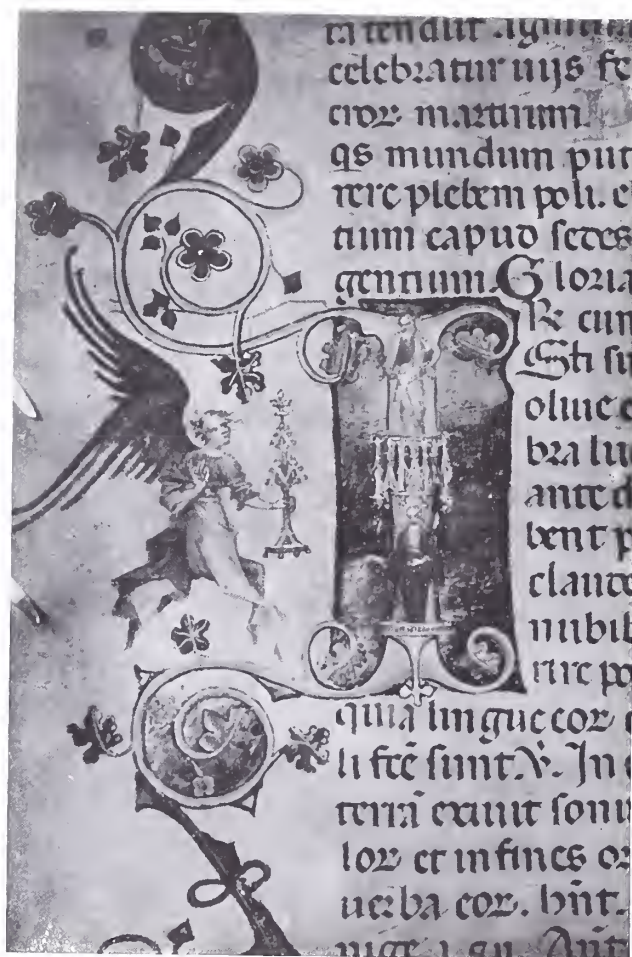 celebratur uijs fe
cioꝝ martirum.
qs mundum put
rere plebem poli. e
tium capud sedes
gentium. Gloria
℞ cum
Sti su
oliue e
bra lu
ante d
bent p
claude
nubib
rire po
quia lingue eoꝝ c
li fcẽ sunt. ꝟ. In
terrã exiuit sonu
loꝝ et in fines or
uerba eoꝝ. hñt.